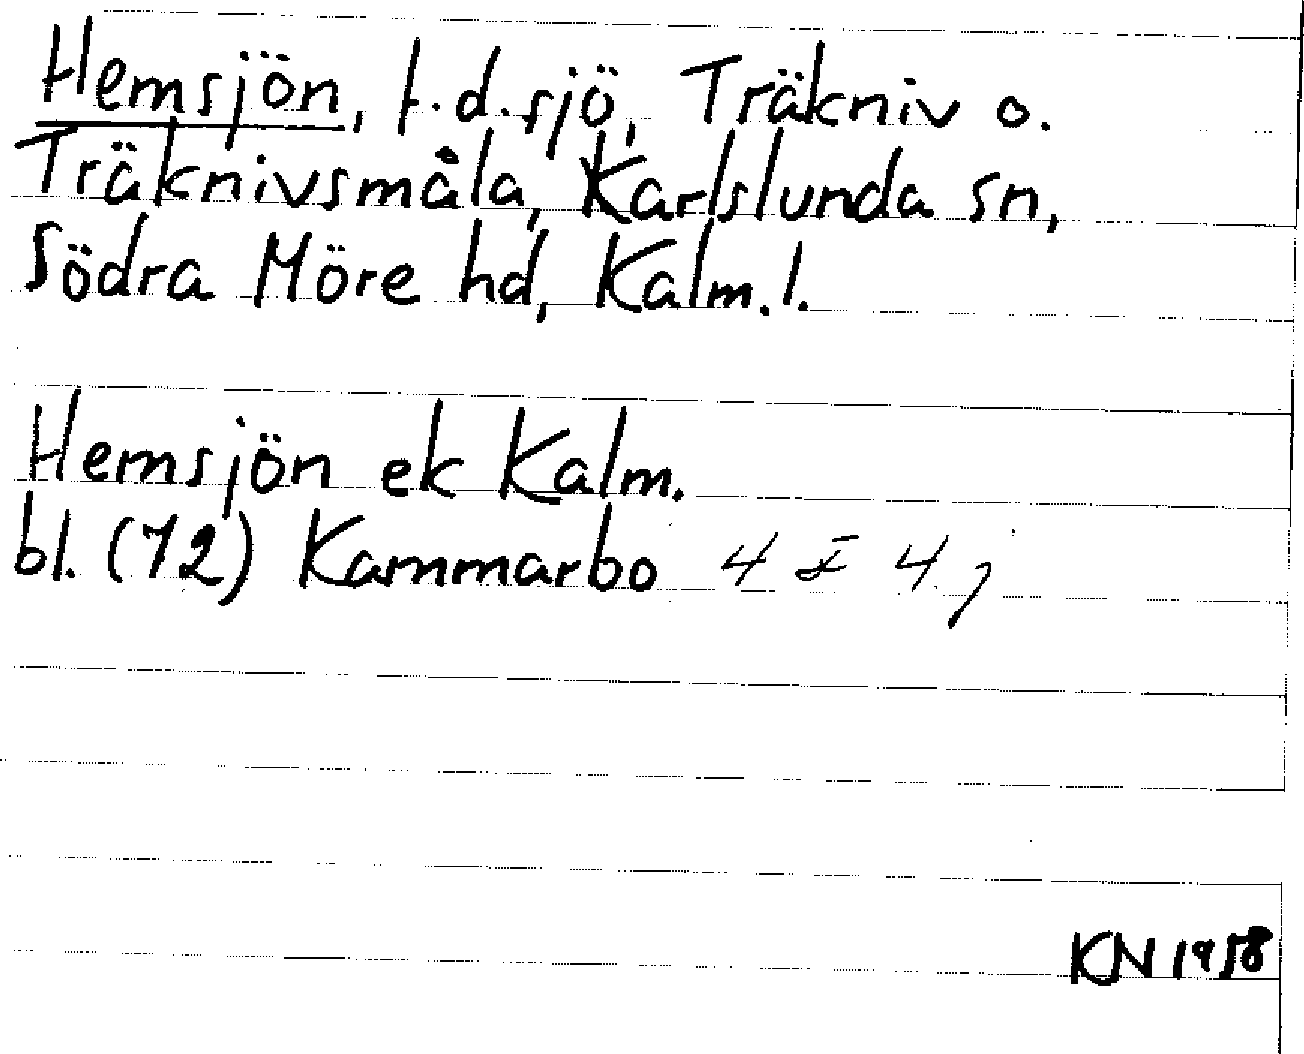 Hemsjön, f.d. sjö, Träkniv o.
Träknivsmåla, Karlslunda sn,
Södra Möre hd, Kalm. l.
Hemsjön ek Kalm.
bl. (72) Kammarbo 4 I 4 j
KN 1958